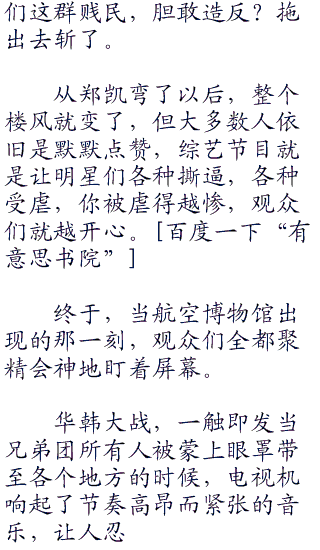 们这群贱民，胆敢造反？拖
出去斩了。
从郑凯弯了以后，整个
楼风就变了，但大多数人依
旧是默默点赞，综艺节目就
是让明星们各种撕逼，各种
受虐，你被虐得越惨，观众
们就越开心。[百度一下“有
意思书院”]
终于，当航空博物馆出
现的那一刻，观众们全都聚
精会神地盯着屏幕。
华韩大战，一触即发当
兄弟团所有人被蒙上眼罩带
至各个地方的时候，电视机
响起了节奏高昂而紧张的音
乐，让人忍